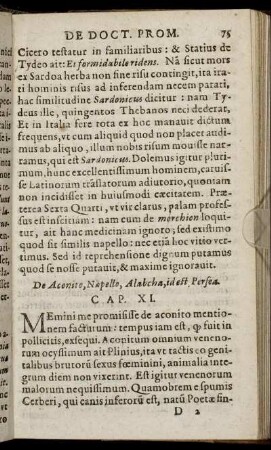 DE DOCT. PROM. 75
Cicero testatur in familiaribus: & Statius de
Tydeo ait: Et formidabile ridens. Nã sicut mors
ex Sardoa herba non sine risu contingit, ita ira-
ti hominis risus ad inferendam necem parati,
hac similitudine Sardonicus dicitur: nam Ty-
deus ille, quingentos Thebanos neci dederat,
Et in Italia fere tota ex hoc manauit dictum
frequens, vt cum aliquid quod non placet audi-
mus ab aliquo, illum nobis risum mouisse nar-
ramus, qui est Sardonicus. Dolemus igitur pluri-
mum, hunc excellentissimum hominem, caruis-
se Latinorum trãslatorum adiutorio, quonam
non incidisset in huiusmodi cæcitatem. Præ-
terea Serra Quarti, vt vir clarus, palam profes-
sus est inscitiam: nam cum de morchion loqui-
tur, ait hanc medicinam ignoro; sed existimo
quod sit similis napello: nec etiã hoc vitio ver-
timus. Sed id reprehensione dignum putamus
quod se nosse putauit, & maxime ignorauit.
De Aconito, Napello, Alabcha, id est Persea.
CAP. XI.
MEmini me promisisse de aconito mentio-
nem facturum: tempus iam est, ꝙ fuit in
pollicitis, exsequi. Aconitum omnium veneno-
rum ocyssimum ait Plinius, ita vt tactis eo geni-
talibus brutorũ sexus fœminini, animalia inte-
grum diem non vixerint. Est igitur venenorum
malorum nequissimum. Quamobrem e spumis
Cerberi, qui canis inferorũ est, natũ Poetæ fin-
D 2